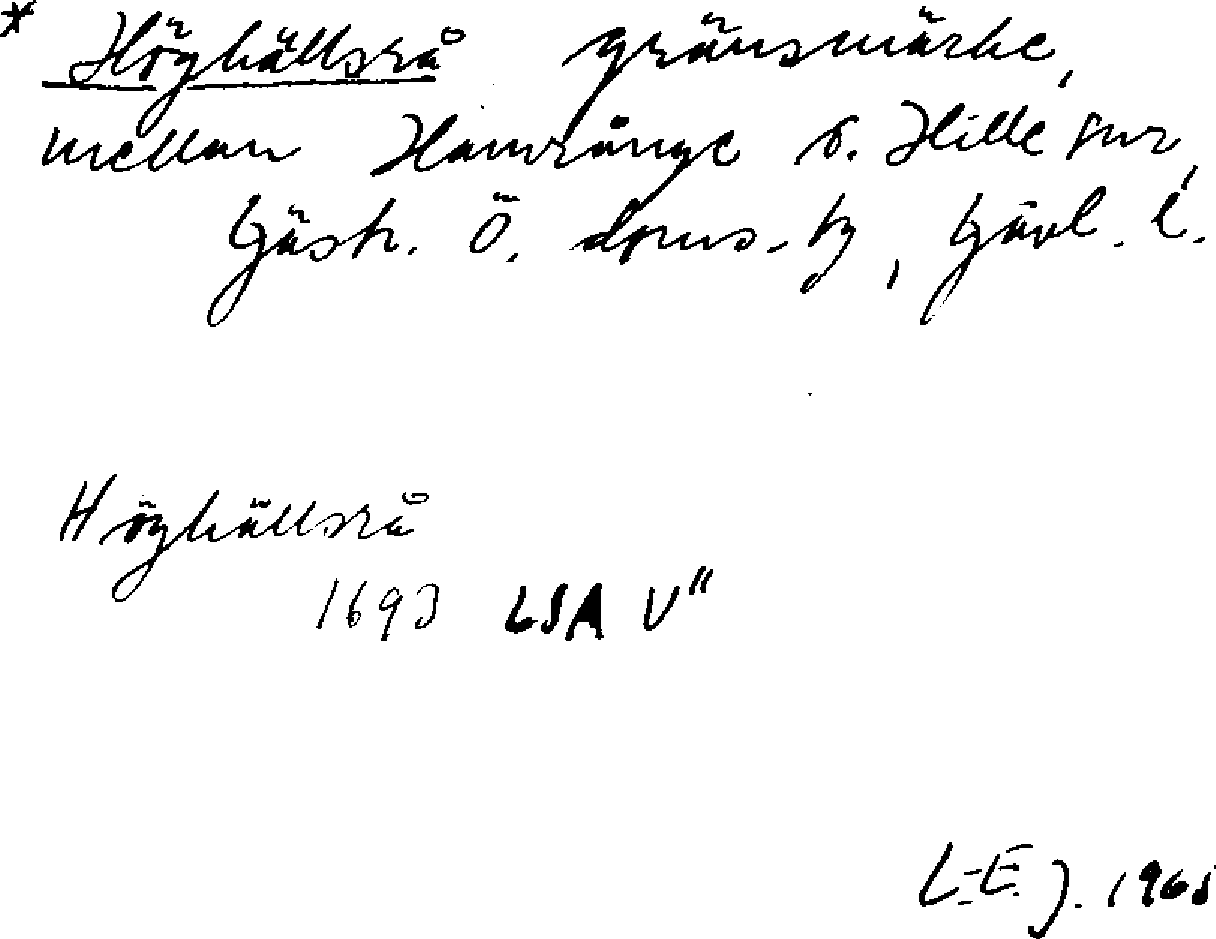 * Höghällsrå gränsmärke,
mellan Hamrånge o. Hille snr,
Gästr. Ö. doms.-tg, Gävl. l.
Höghällsrå
1693 LSA V"
L-E J. 196